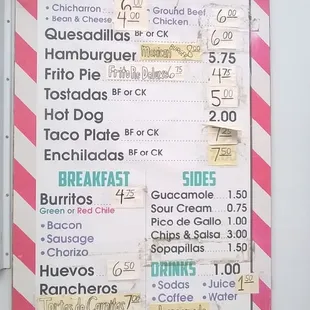 • Chicharron 6
• Ground Beef 6.00
• Bean & Cheese 4.00
Chicken
Quesadillas BF or CK 6.00
Hamburguer Mexican 8.00 5.75
Frito Pie Frito Pie Deluxe 6.75 4.75
Tostadas BF or CK 5.00
Hot Dog 2.00
Taco Plate BF or CK 7.25
Enchiladas BF or CK 7.50
BREAKFAST
Burritos 4.75
Green or Red Chile
• Bacon
• Sausage
• Chorizo
Huevos 6.50
Rancheros
Tortas de Carnitas 7.00
SIDES
Guacamole 1.50
Sour Cream 0.75
Pico de Gallo 1.00
Chips & Salsa 3.00
Sopapillas 1.50
DRINKS 1.00
• Sodas • Juice 1.50
• Coffee • Water